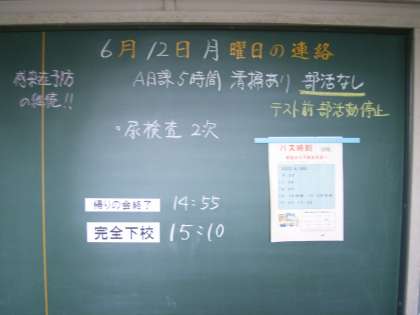 6月12日月曜日の連絡
感染症予防
の継続!!
AB課5時間 清掃あり 部活なし
テスト前部活動停止
◦尿検査 2次
バス時刻
帰りの会終了 14:55
完全下校 15:10